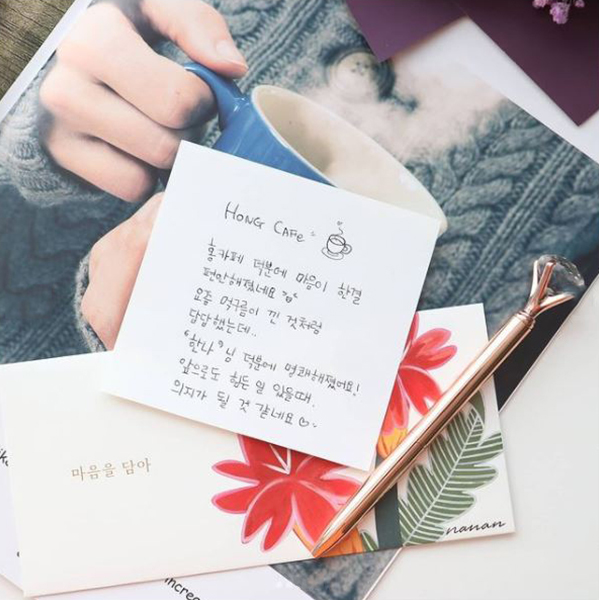 HONG CAFE -
홍카페 덕분에 마음이 한결
편안해졌네요
요즘 먹구름이 낀 것처럼
답답했는데..
"한나"님 덕분에 명쾌해졌어요!
앞으로도 힘든 일 있을때.
의지가 될 것 같네요
마음을 담아
nanan
increa